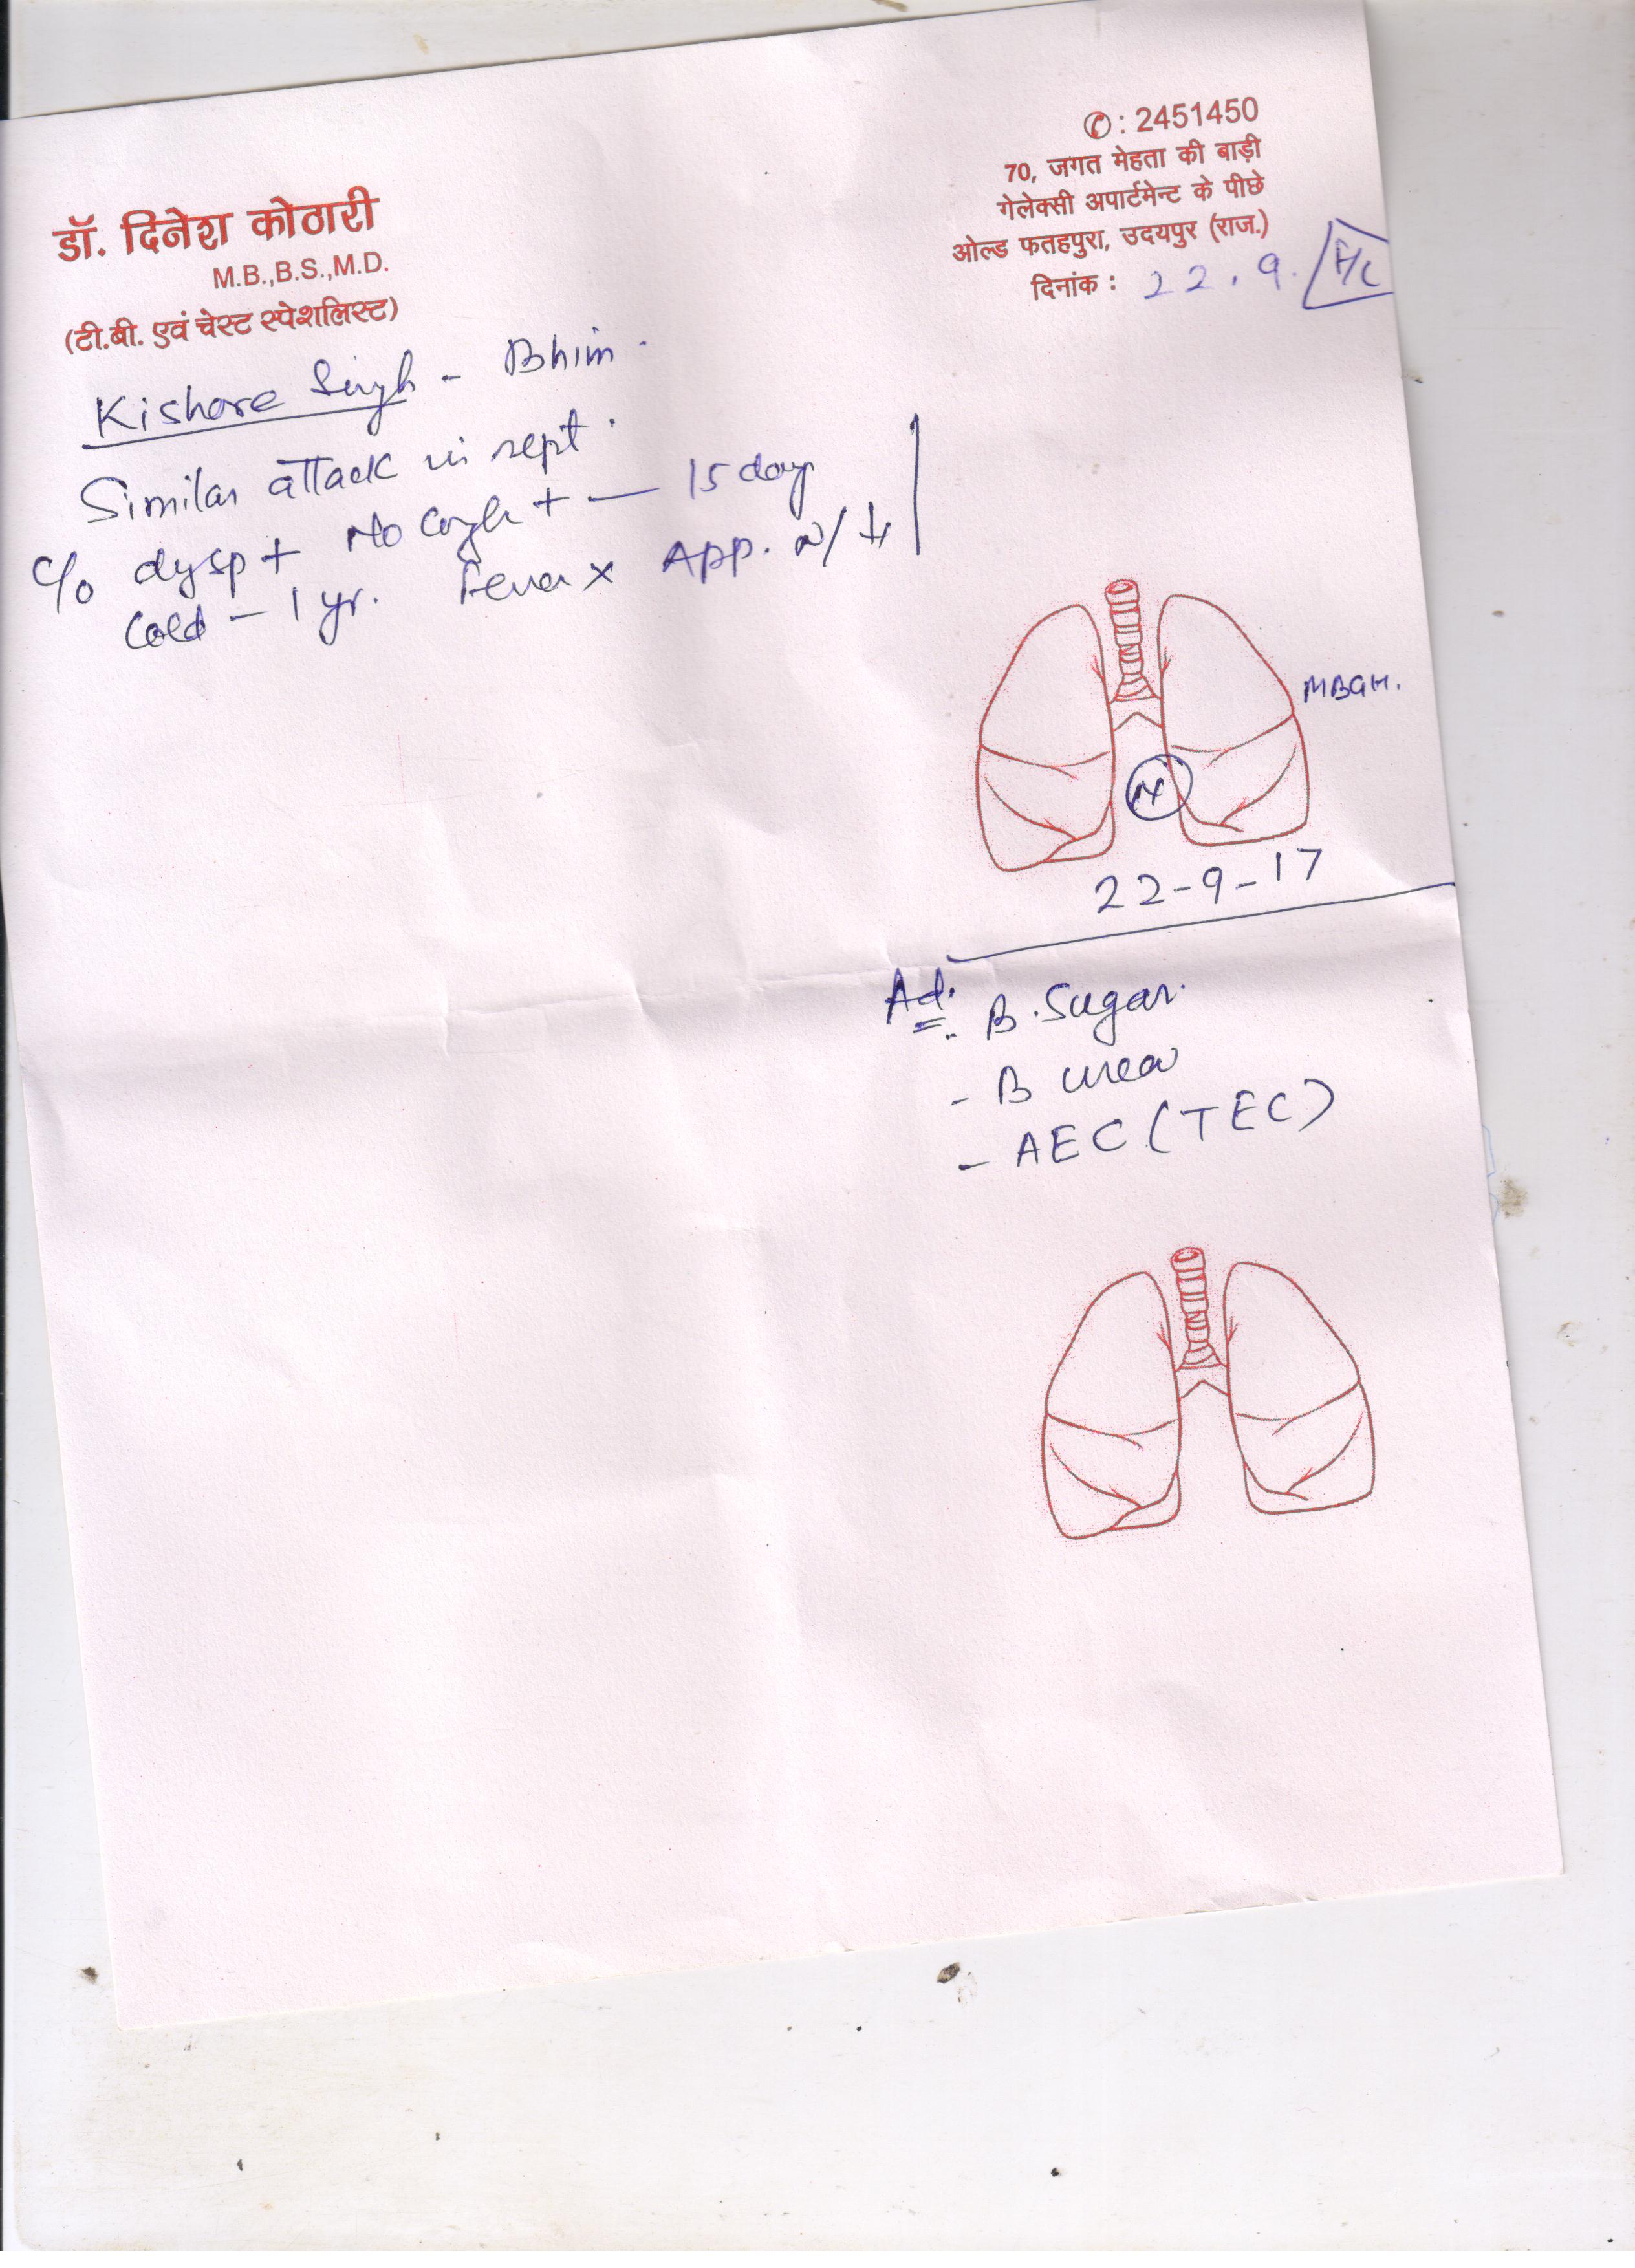 ✆ : 2451450
70, जगत मेहता की बाड़ी
गेलेक्सी अपार्टमेन्ट के पीछे
ओल्ड फतहपुरा, उदयपुर (राज.)
दिनांक : 22.9.
डॉ. दिनेश कोठारी
M.B.,B.S.,M.D.
(टी.बी. एवं चेस्ट स्पेशलिस्ट)
Kishore Singh - Bhim.
Similar attack in sept.
C/o dysp + No Cough + — 15 day
Cold - 1 yr. Fever x App. N/
MBGH.
22-9-17
Ad.
- B. Sugar.
- B urea
- AEC (TEC)